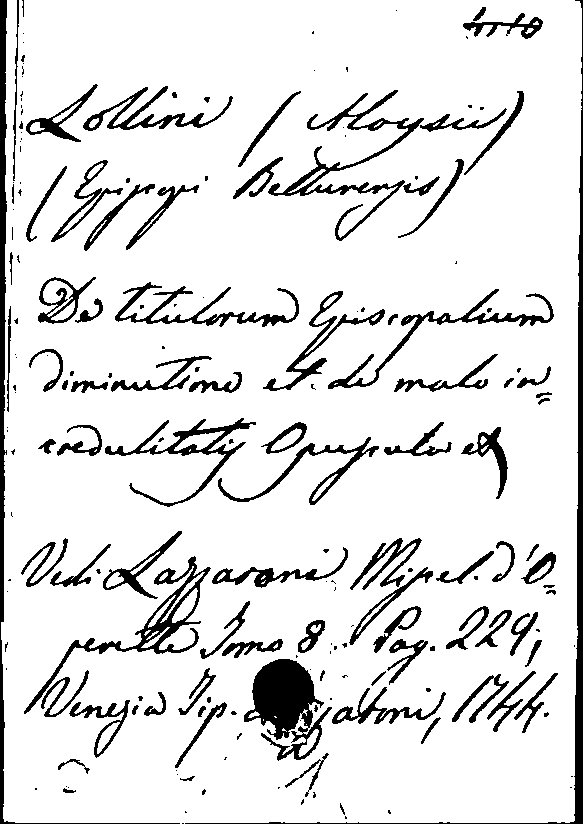 Lollini (Aloysii)
(Episcopi Bellunensis)
De titulorum Episcopalium
diminutione et de malo in=
credulitatis Opuscula et
Vedi Lazzaroni Miscel. d'O=
perette Tomo 8. Pag. 229,
Venezia Tip. 1744.